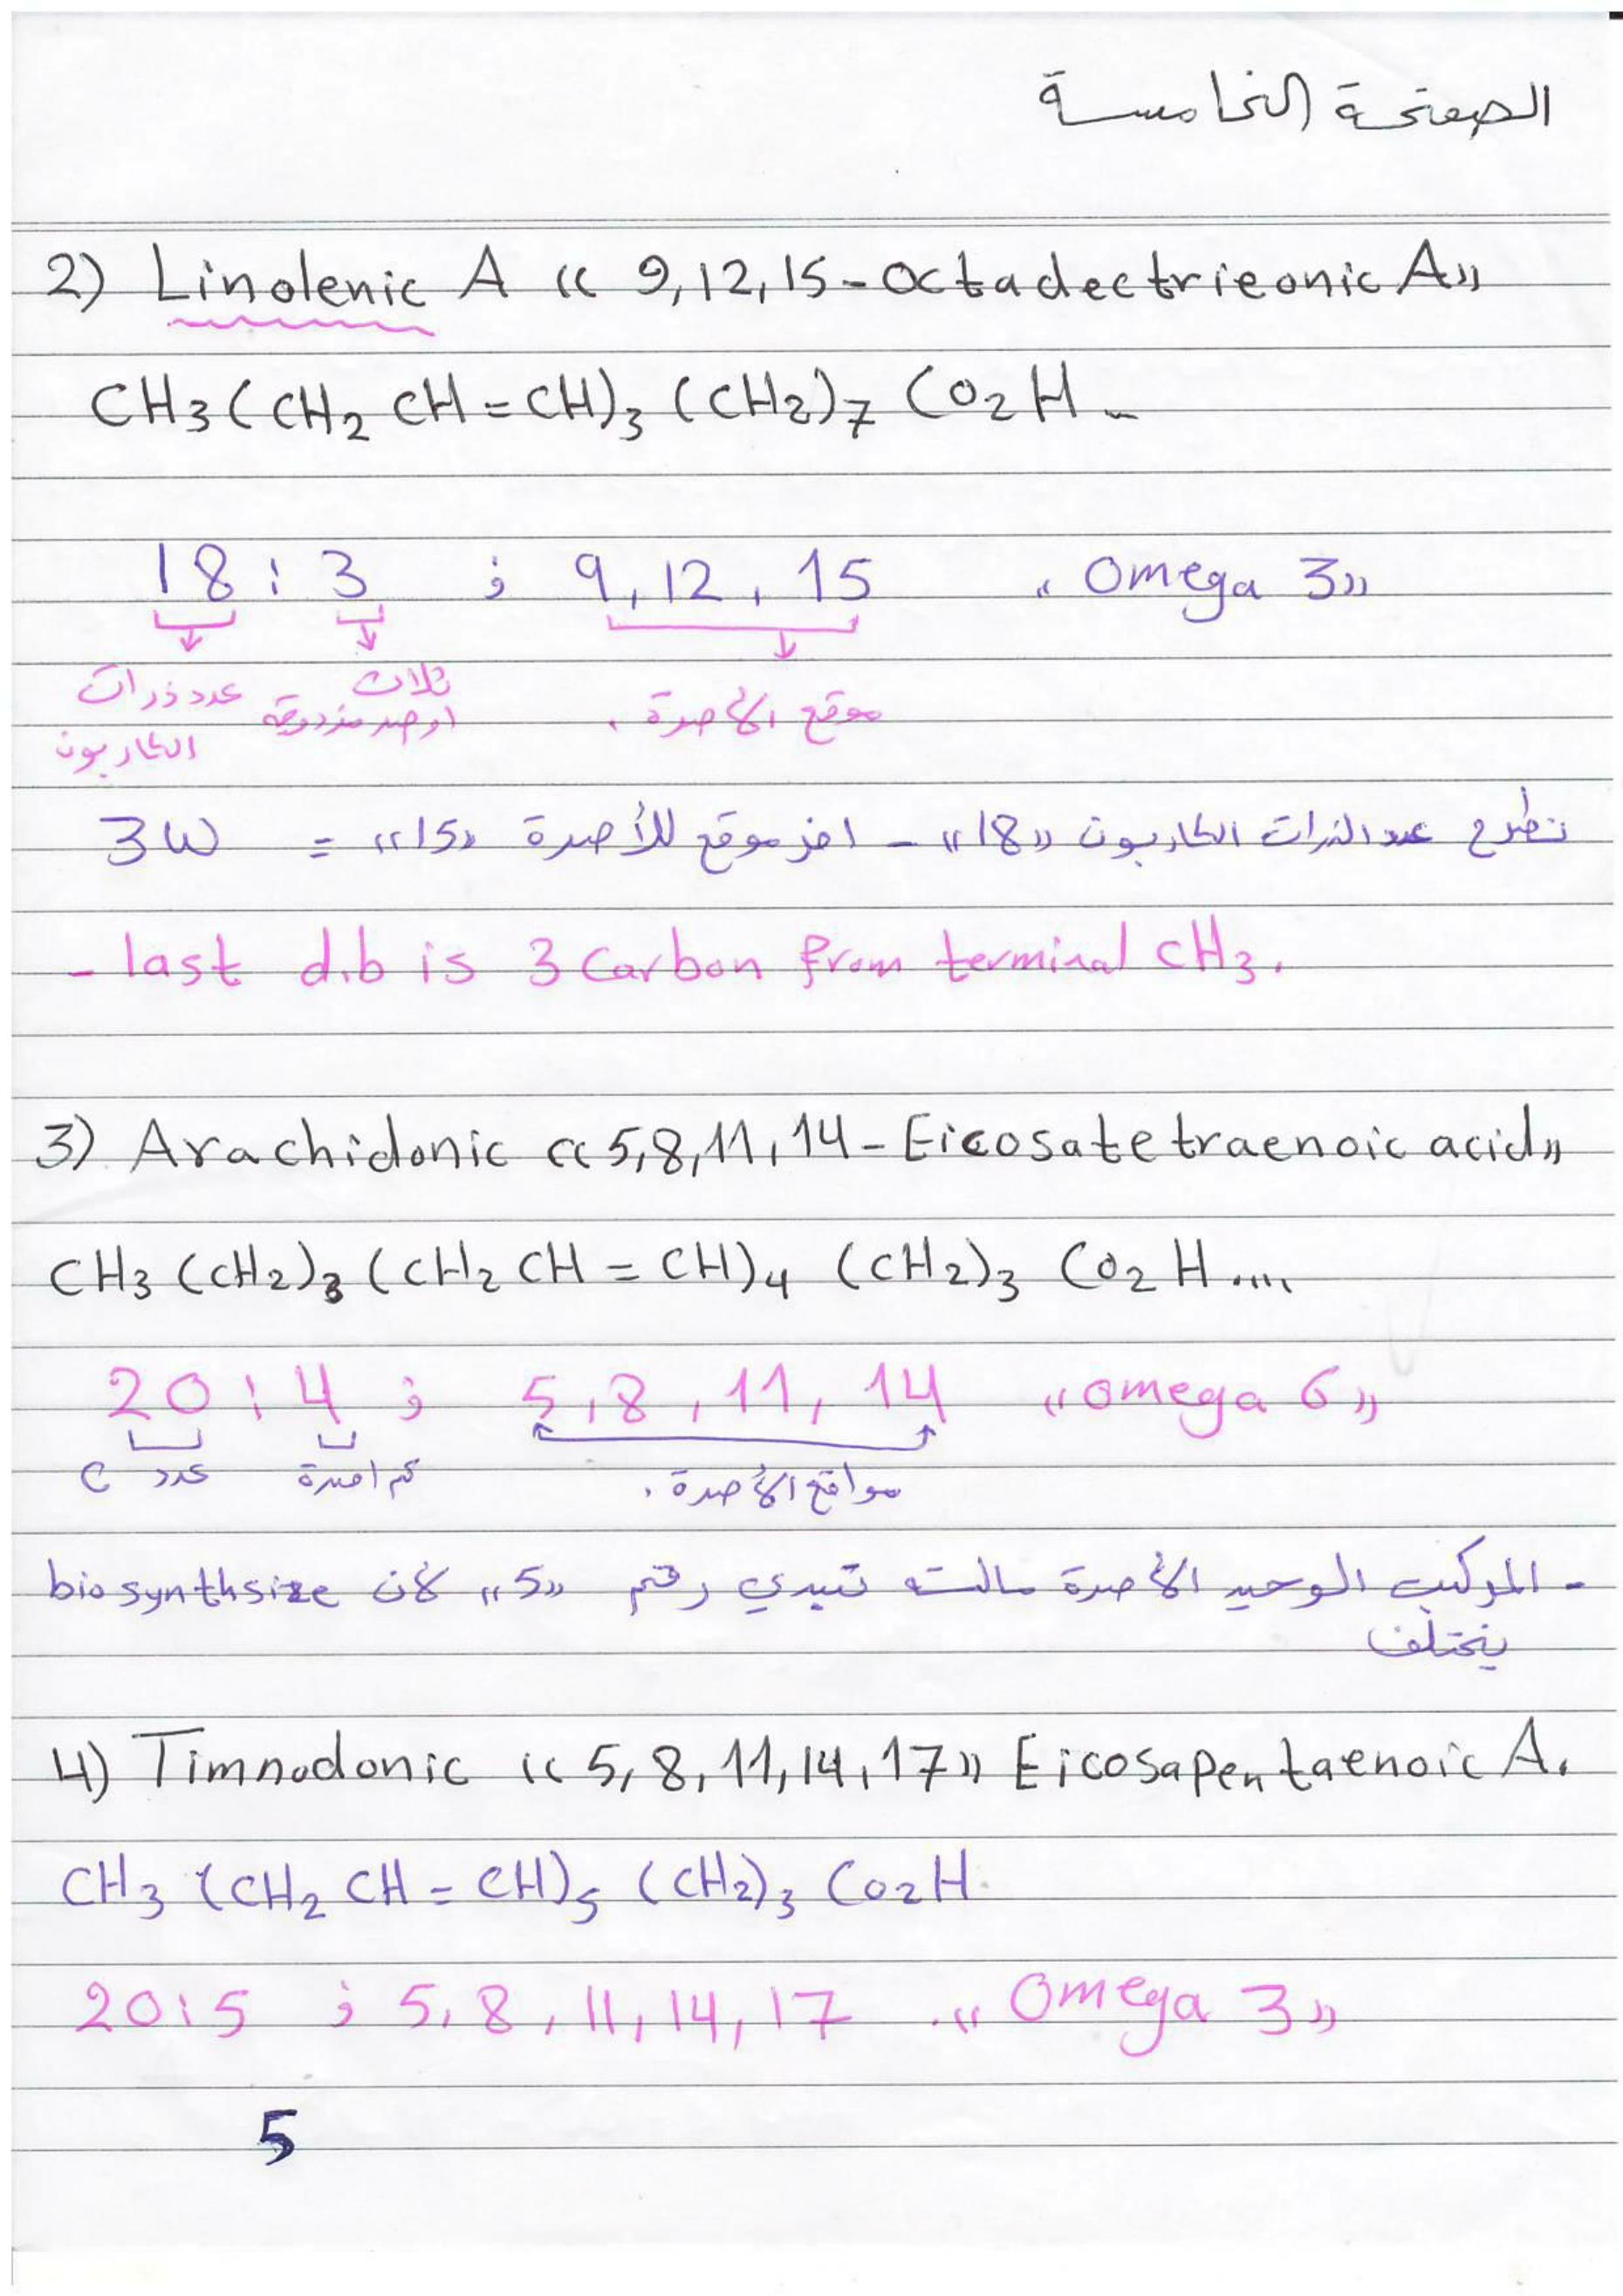 الصفحة الخامسة
2) Linolenic A «9,12,15-Octadectrieonic A»
CH3(CH2 CH=CH)3 (CH2)7 CO2H
18:3 ; 9,12,15 «Omega 3»
عدد ذرات الكاربون
ثلاث اوصد مزدوجة
موقع الأصرة.
نطرح عدد الذرات الكاربون «18» - اخر موقع للأصرة «15» = 3W
- last d.b is 3 Carbon from terminal CH3.
3) Arachidonic «5,8,11,14-Eicosatetetraenoic acid»
CH3(CH2)3(CH2 CH=CH)4 (CH2)3 CO2H....
20:4 ; 5,8,11,14 «omega 6»
عدد C
كم اصرة
مواقع الأصرة.
- المركب الوحيد الأصرة مالته تبدي رقم «5» لأن biosynthsize
يختلف
4) Timnodonic «5,8,11,14,17» Eicosapentaenoic A.
CH3(CH2 CH=CH)5 (CH2)3 CO2H.
20:5 ; 5,8,11,14,17 .«Omega 3»
5